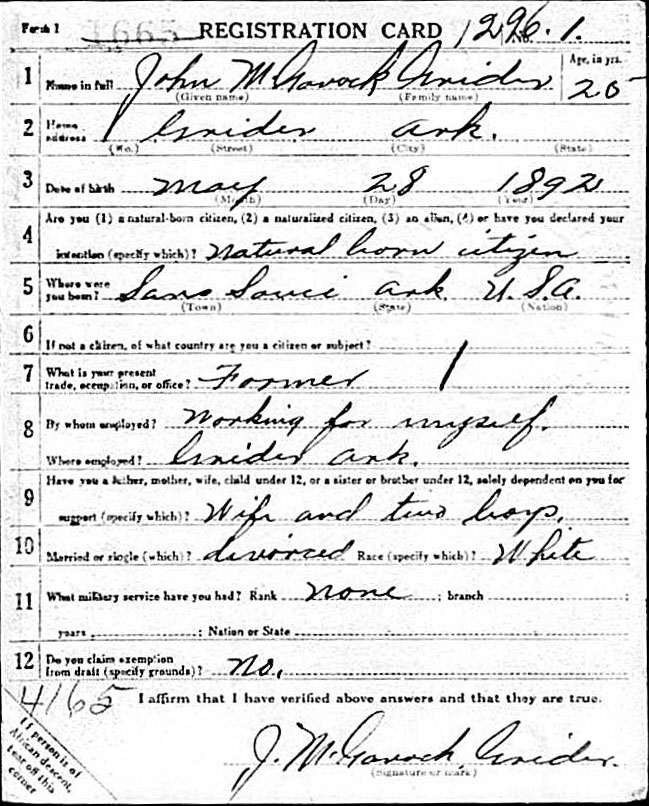 Form 1 1665 REGISTRATION CARD 1296. No. 1.
1 Name in full John McGavock Grider Age, in yrs. 25
(Given name) (Family name)
2 Home address Grider Ark.
(No.) (Street) (City) (State)
3 Date of birth May 28 1892
(Month) (Day) (Year)
4 Are you (1) a natural-born citizen, (2) a naturalized citizen, (3) an alien, (4) or have you declared your
intention (specify which)? Natural born citizen
5 Where were you born? Sans Souci Ark U.S.A.
(Town) (State) (Nation)
6 If not a citizen, of what country are you a citizen or subject?
7 What is your present trade, occupation, or office? Farmer
8 By whom employed? Working for myself.
Where employed? Grider Ark.
9 Have you a father, mother, wife, child under 12, or a sister or brother under 12, solely dependent on you for
support (specify which)? Wife and two boys.
10 Married or single (which)? divorced Race (specify which)? White
11 What military service have you had? Rank none ; branch ;
years ; Nation or State
12 Do you claim exemption from draft (specify grounds)? No.
4165 I affirm that I have verified above answers and that they are true.
If person is of
African descent,
tear off this
corner
J. McGavock Grider.
(Signature or mark)